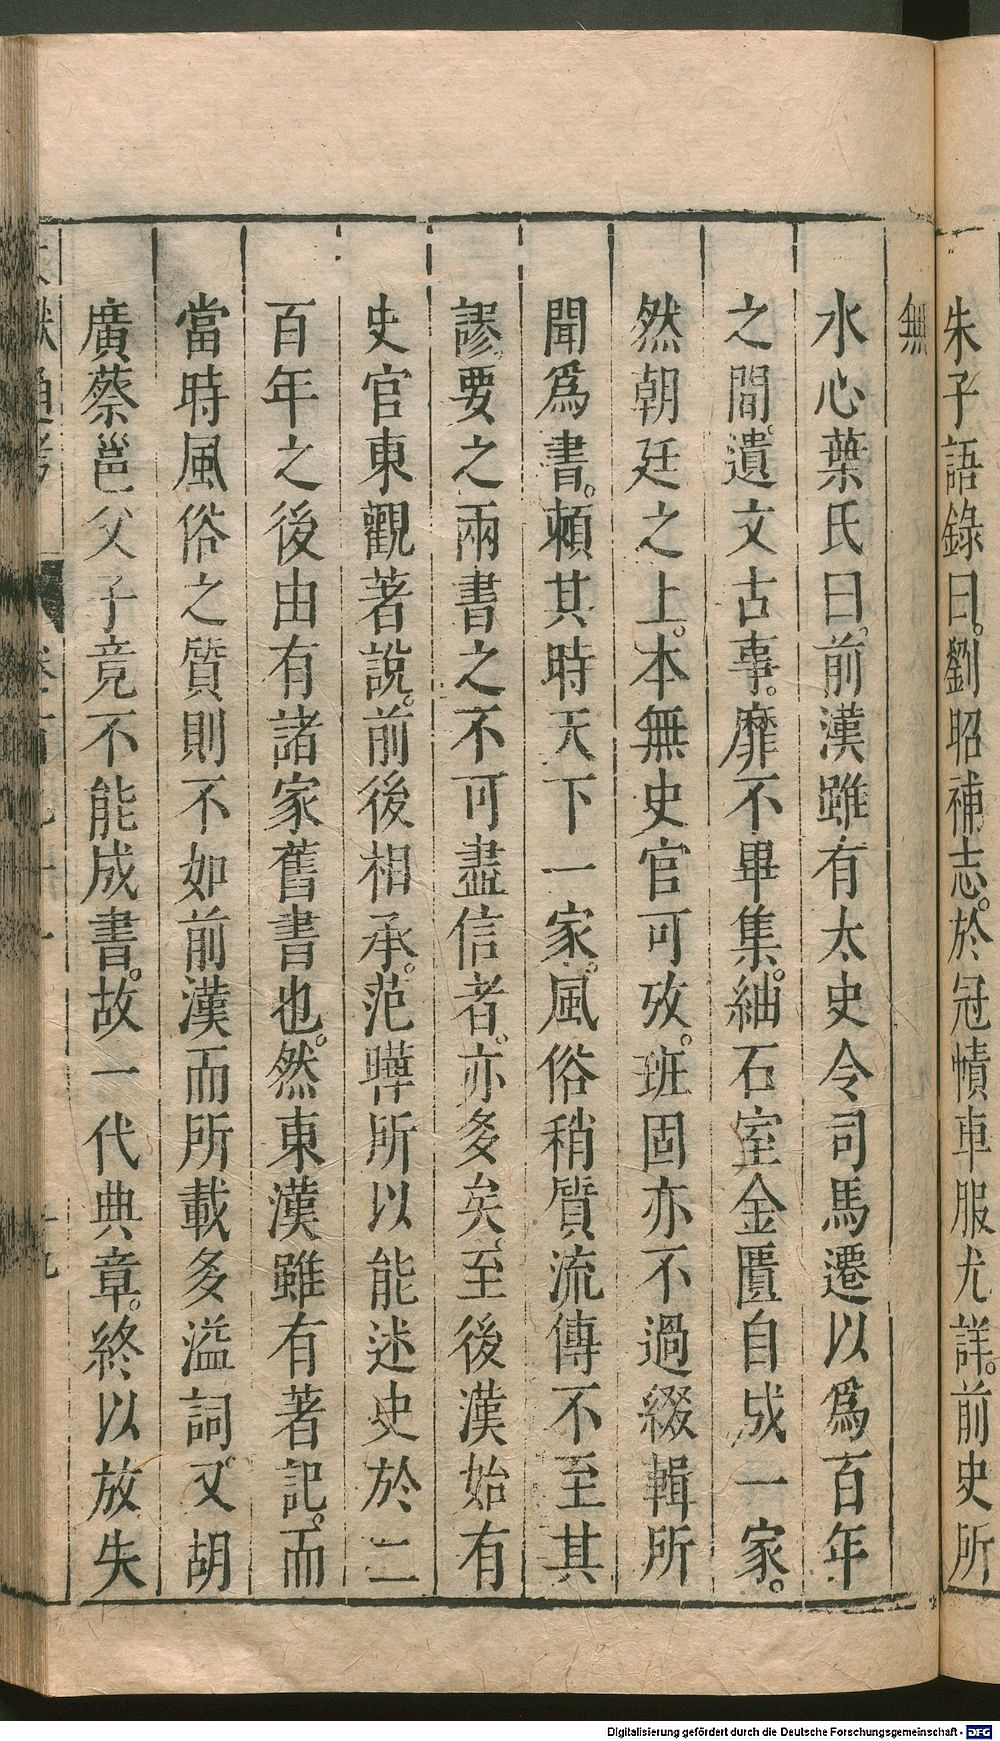 朱子語錄曰。劉昭補志。於冠幘車服尤詳。前史所
無
水心葉氏曰。前漢雖有太史令司馬遷以爲百年
之間。遺文古事。靡不畢集。紬石室金匱自成一家。
然朝廷之上。本無史官可攷。班固亦不過綴輯所
聞爲書。頼其時天下一家。風俗稍質流傳不至其
謬。要之兩書之不可盡信者。亦多矣。至後漢始有
史官東觀著說。前後相承。范曄所以能述史於二
百年之後由有諸家舊書也。然東漢雖有著記。而
當時風俗之質則不如前漢而所載多溢詞。又胡
廣蔡邕父子竟不能成書。故一代典章。終以放失
Digitalisierung gefördert durch die Deutsche Forschungsgemeinschaft - DFG